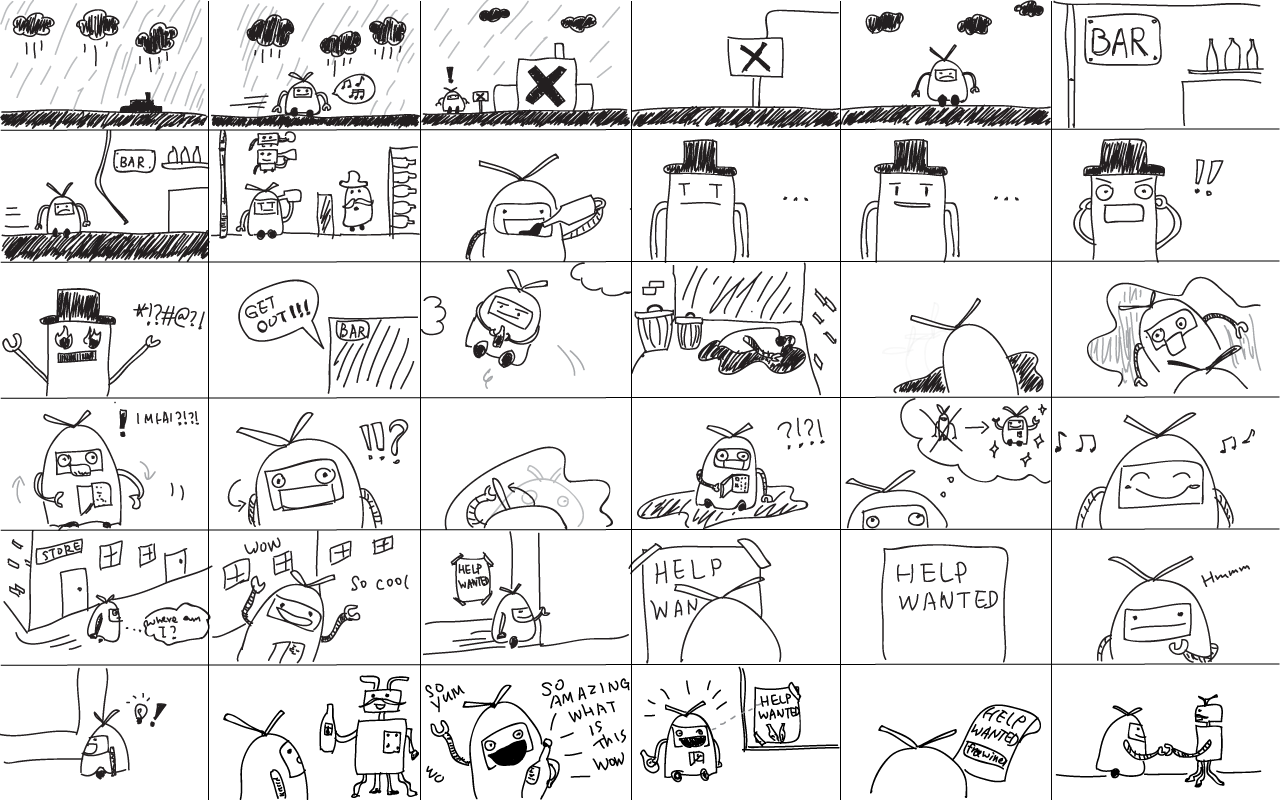 BAR
BAR
*!?#@?!
GET
OUT!!!
BAR
!
!!?
?!?!
STORE
where am
I?
WOW
SO COOL
HELP
WANTED
HELP
WAN
HELP
WANTED
Hmmm
SO
YUM
WO
SO
AMAZING
WHAT
IS
THIS
WOW
HELP
WANTED
HELP
WANTED